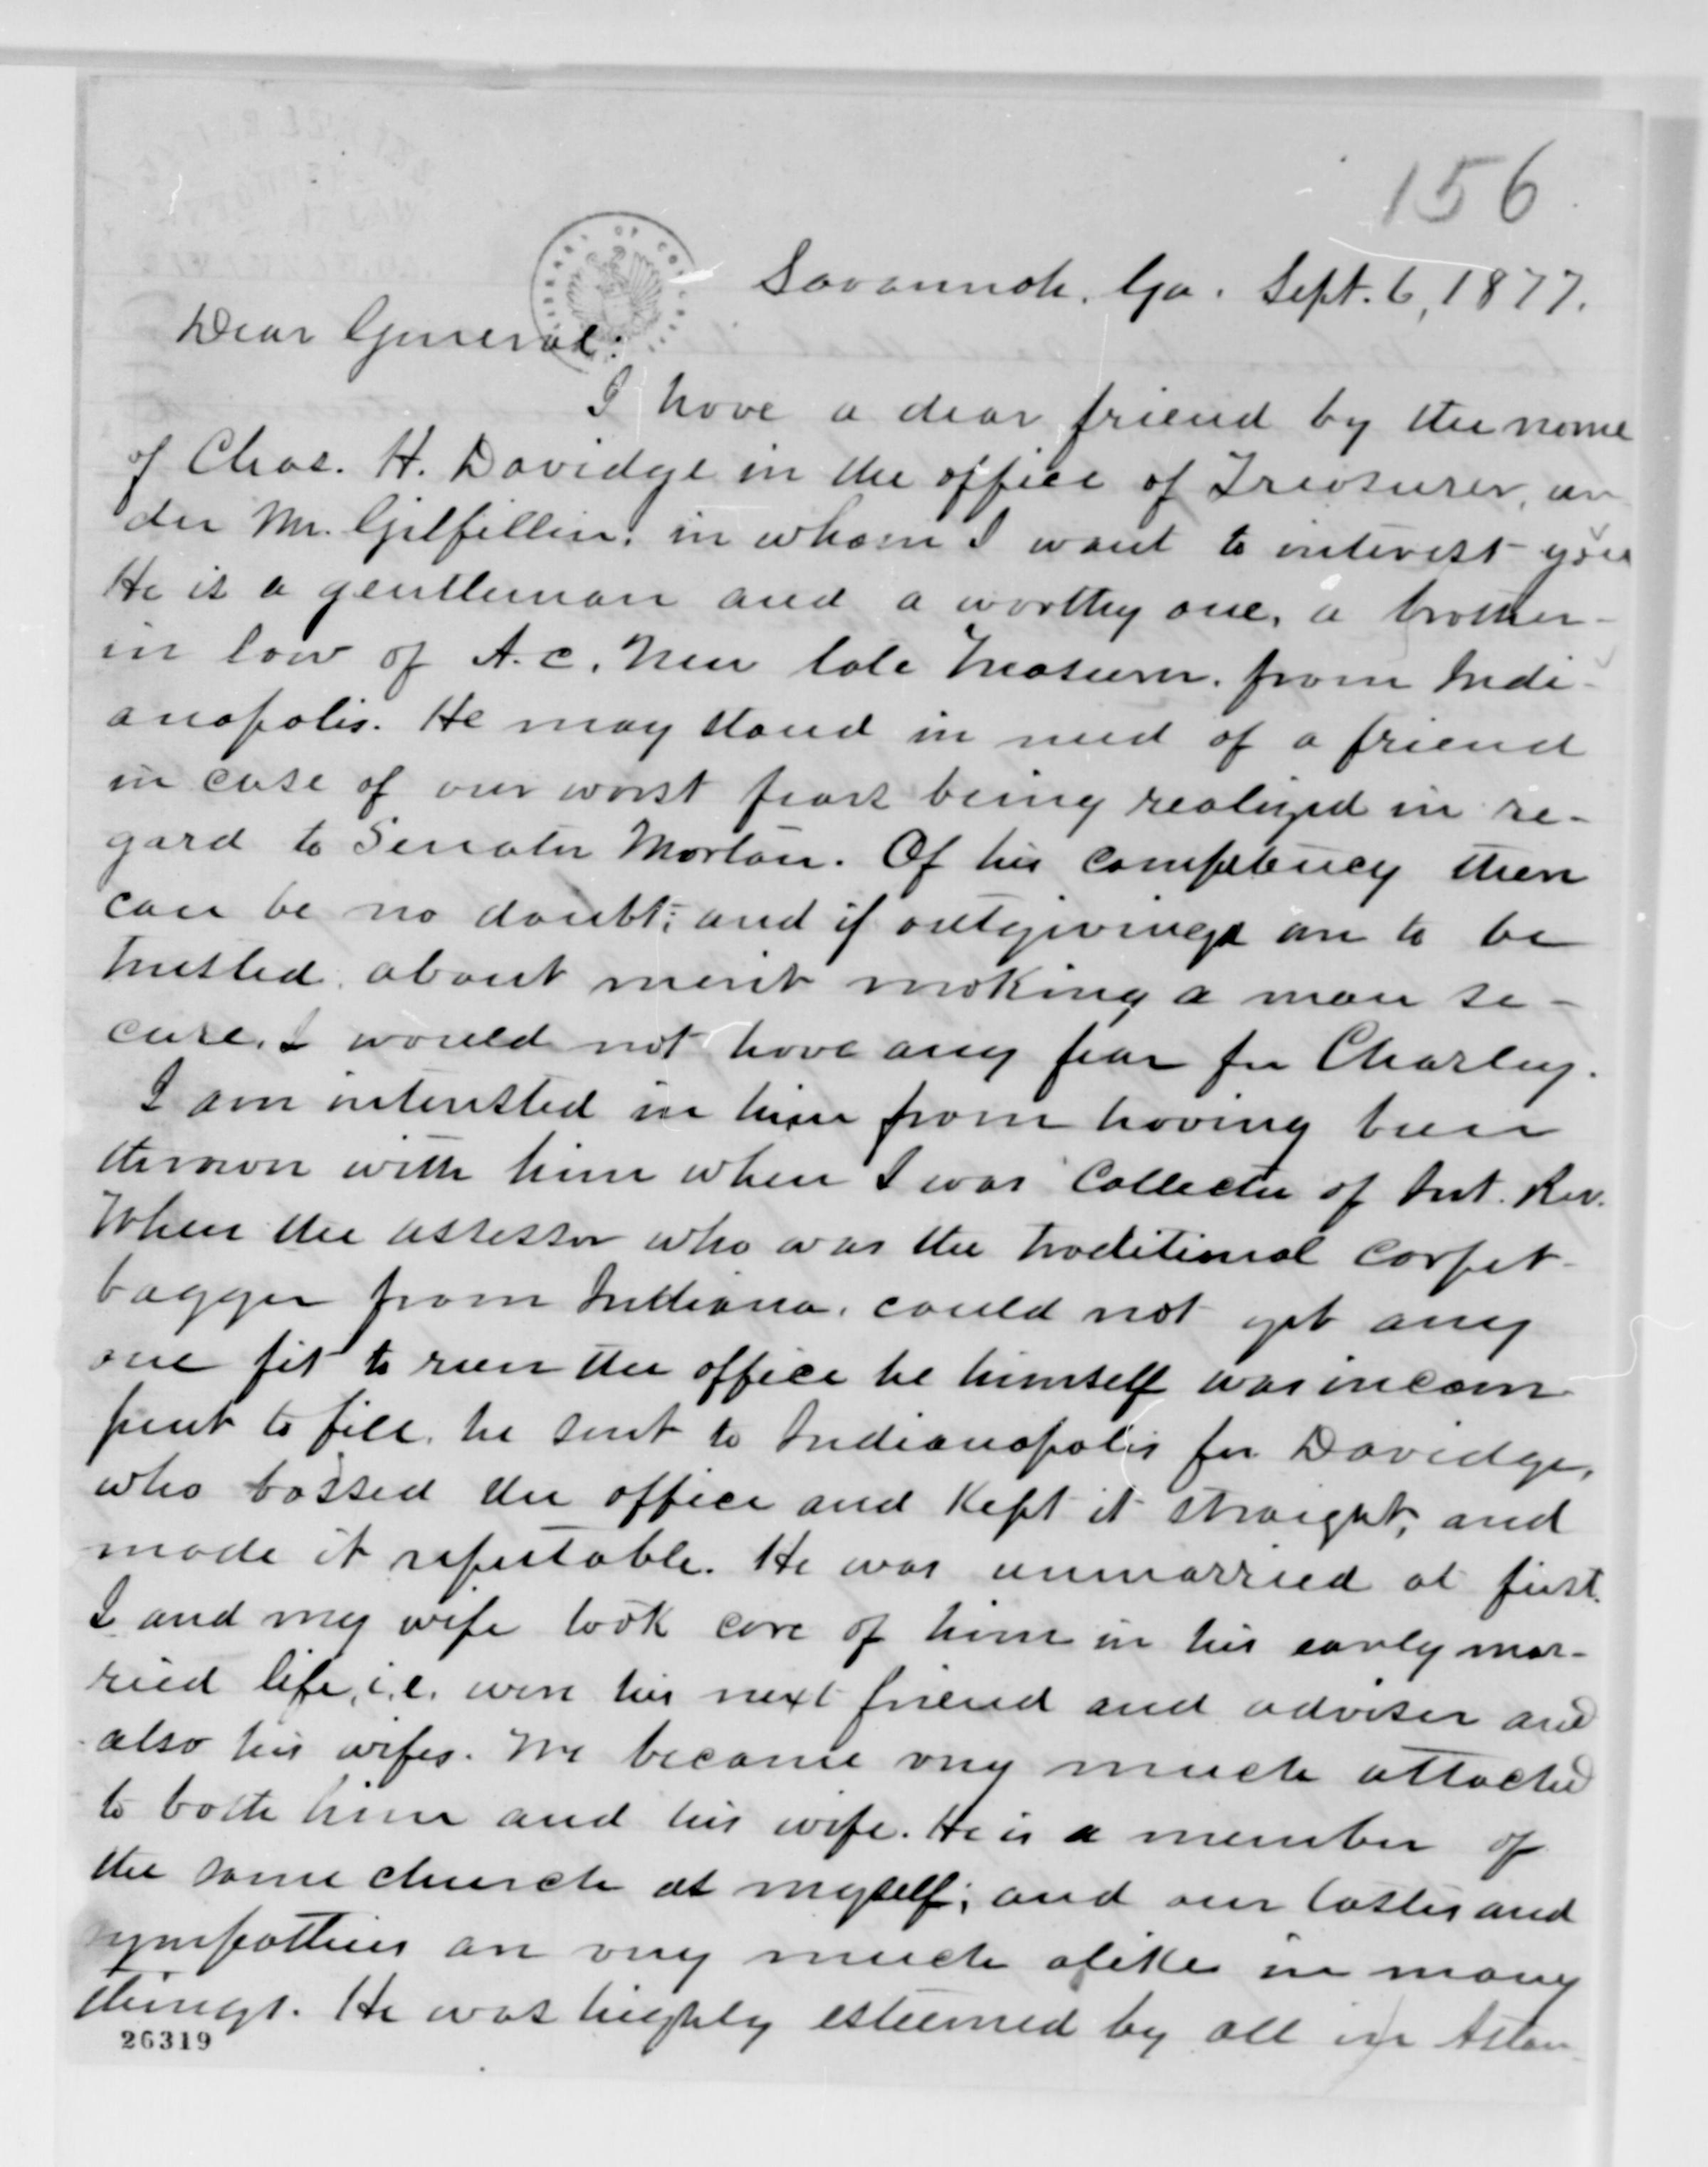 156
Savannah, Ga. Sept. 6, 1877.
Dear General:
I have a dear friend by the name
of Chas. H. Davidge in the office of Treasurer, un
der Mr. Gilfillin, in whom I want to interest you
He is a gentleman and a worthy one, a brother-
in law of A. C. New late Treasurer, from Indi-
anapolis. He may stand in need of a friend
in case of our worst fears being realized in re-
gard to Senator Morton. Of his competency there
can be no doubt; and if outgivings are to be
trusted, about merit making a man se-
cure, I would not have any fear for Charley.
I am interested in him from having been
thrown with him when I was Collector of Int. Rev.
When the assessor who was the traditional carpet-
bagger from Indiana, could not get any
one fit to run the office he himself was incom
petent to fill, he sent to Indianapolis for Davidge,
who bossed the office and kept it straight, and
made it reputable. He was unmarried at first.
I and my wife took care of him in his early mar-
ried life, i.e. were his next friend and adviser and
also his wifes. We became very much attached
to both him and his wife. He is a member of
the same church as myself; and our tastes and
sympathies are very much alike in many
things. He was highly esteemed by all in Atlan
26319